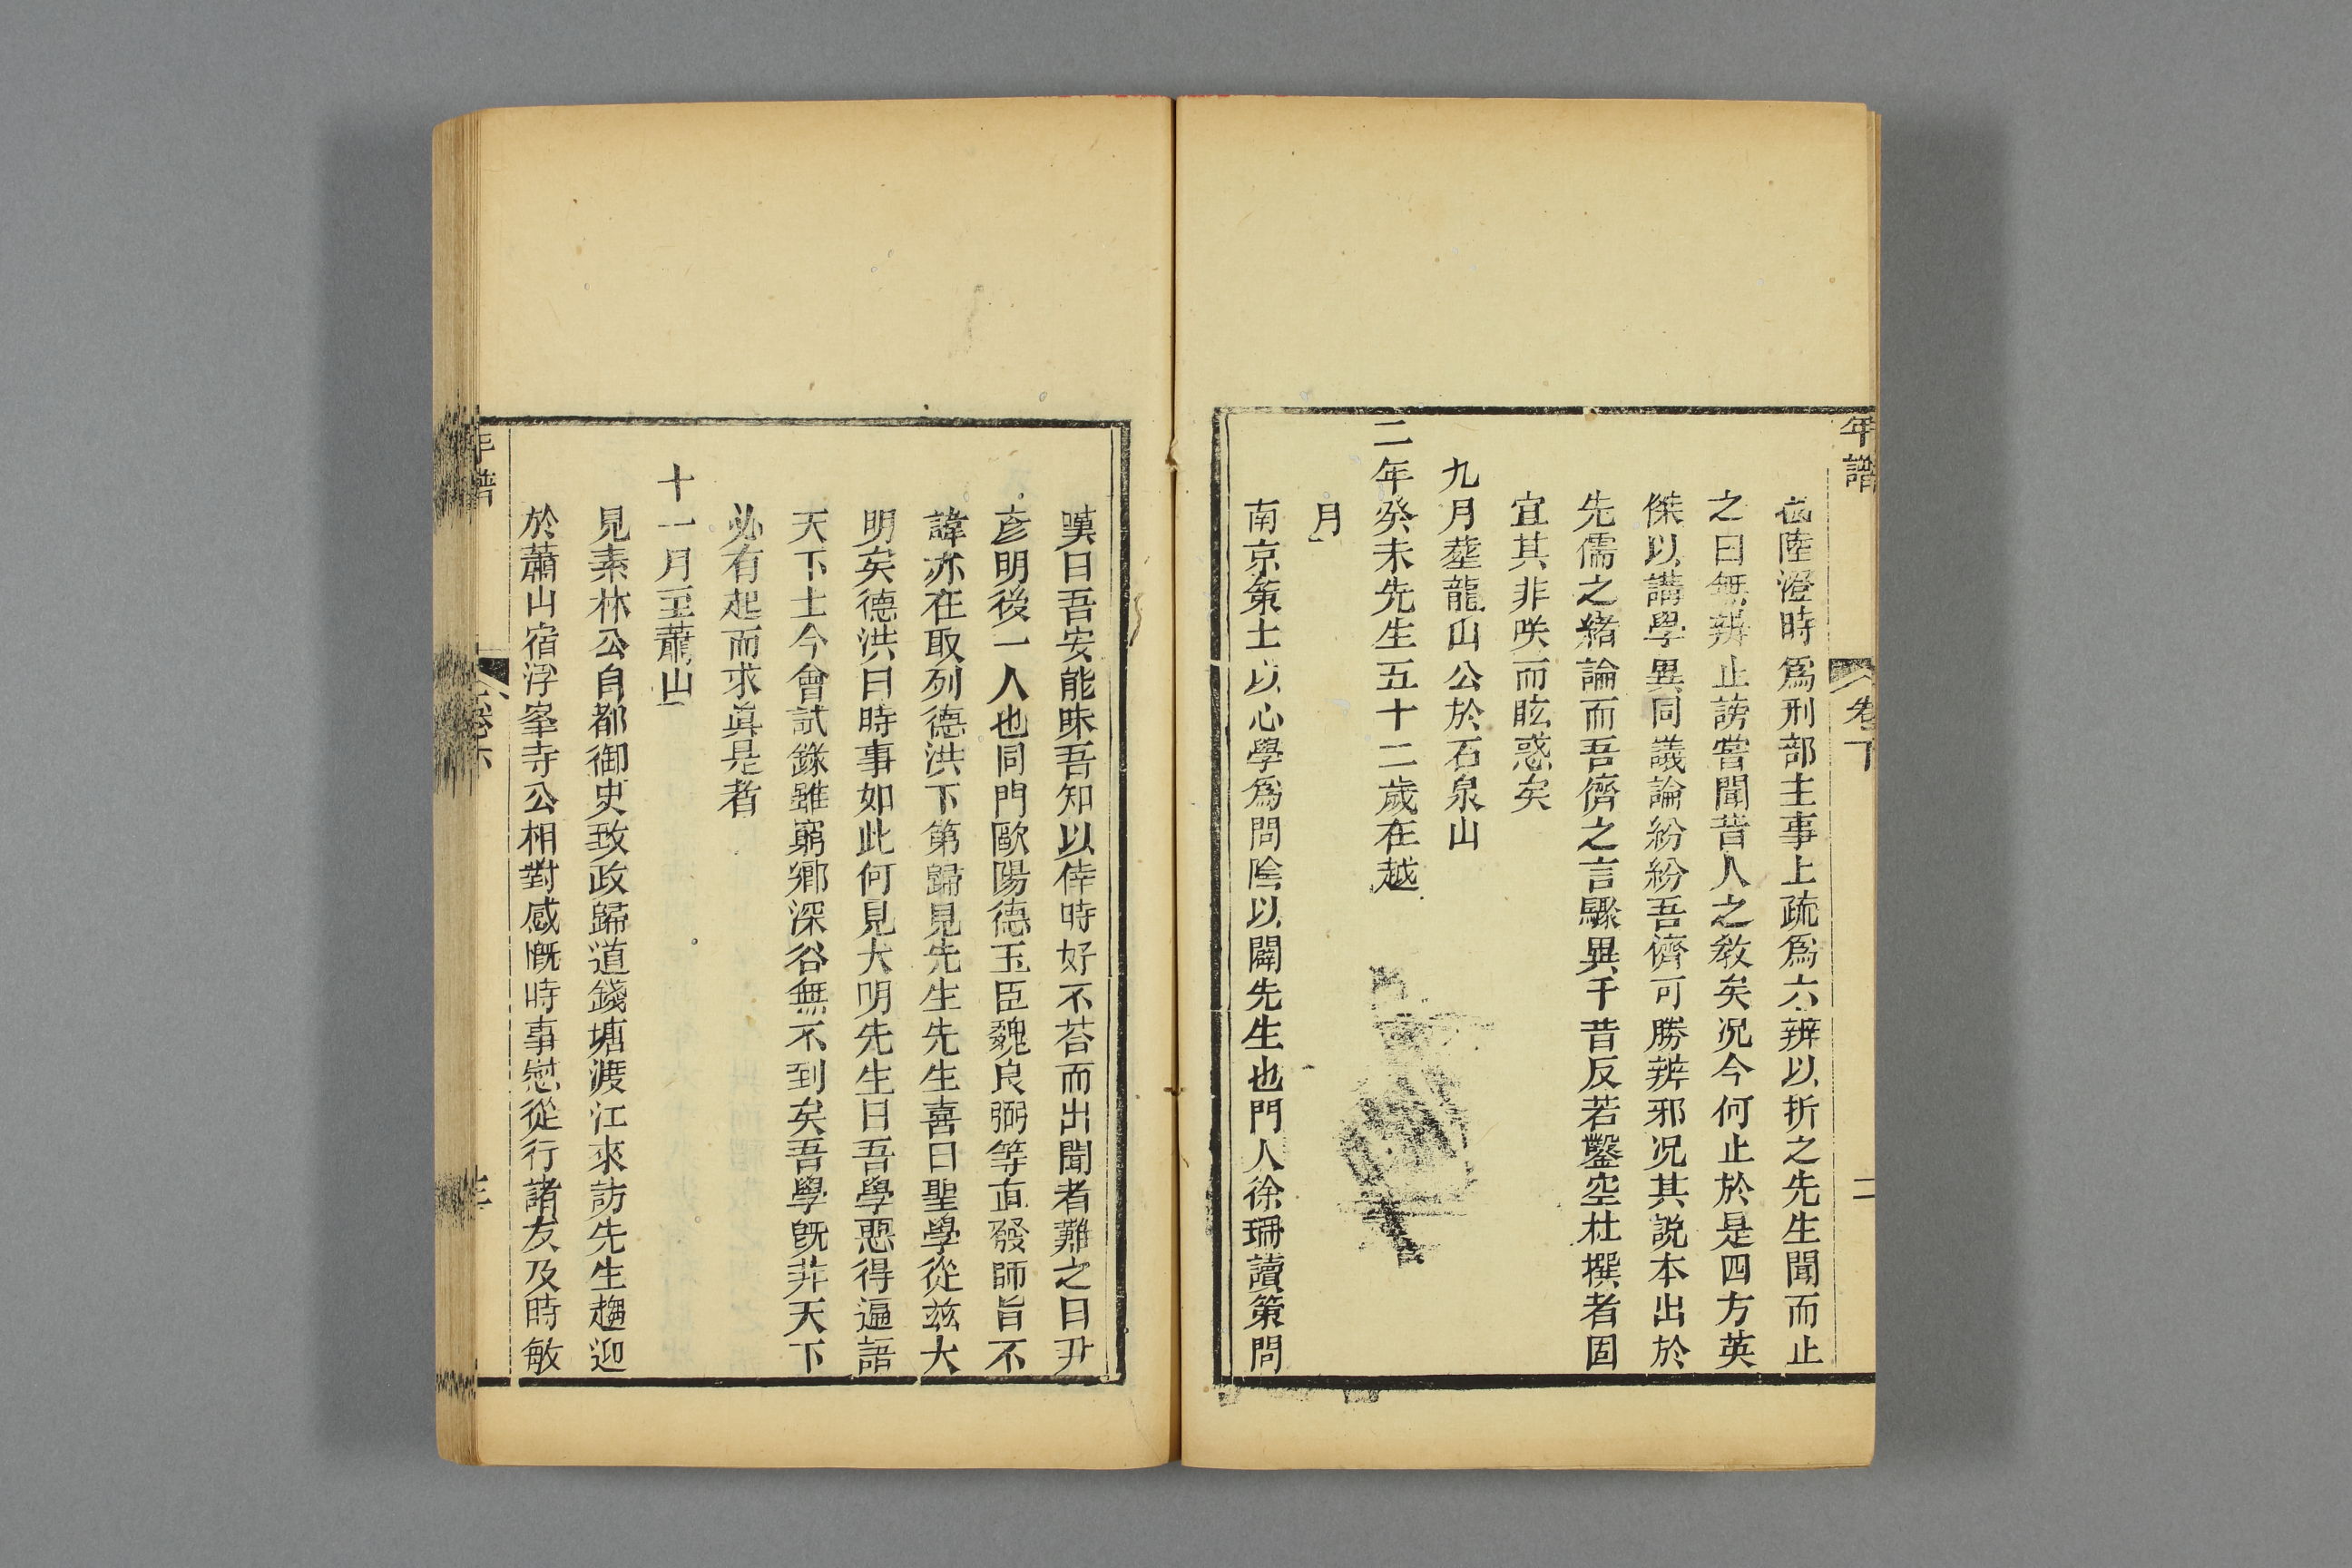 年譜 卷下 二
陸澄時爲刑部主事上疏爲六辨以折之先生聞而止
之曰無辨止謗嘗聞昔人之教矣况今何止於是四方英
傑以講學異同議論紛紛吾儕可勝辨邪况其説本出於
先儒之緒論而吾儕之言驟異千昔反若鑿空杜撰者固
宜其非咲而眩惑矣
九月塟龍山公於石泉山
二年癸未先生五十二歲在越
月
南京策士以心學爲問陰以闢先生也門人徐珊讀策問
嘆曰吾安能昧吾知以倖時好不荅而出聞者難之曰尹
彦明後一人也同門歐陽德王臣魏良弼等直發師旨不
諱亦在取列德洪下第歸見先生先生喜曰聖學從兹大
明矣德洪曰時事如此何見大明先生曰吾學惡得遍語
天下士今會試錄雖窮鄉深谷無不到矣吾學旣非天下
必有起而求眞是者
十一月至蕭山
見素林公自都御史致政歸道錢塘渡江來訪先生趨迎
於蕭山宿浮峯寺公相對感慨時事慰從行諸友及時敏
年譜